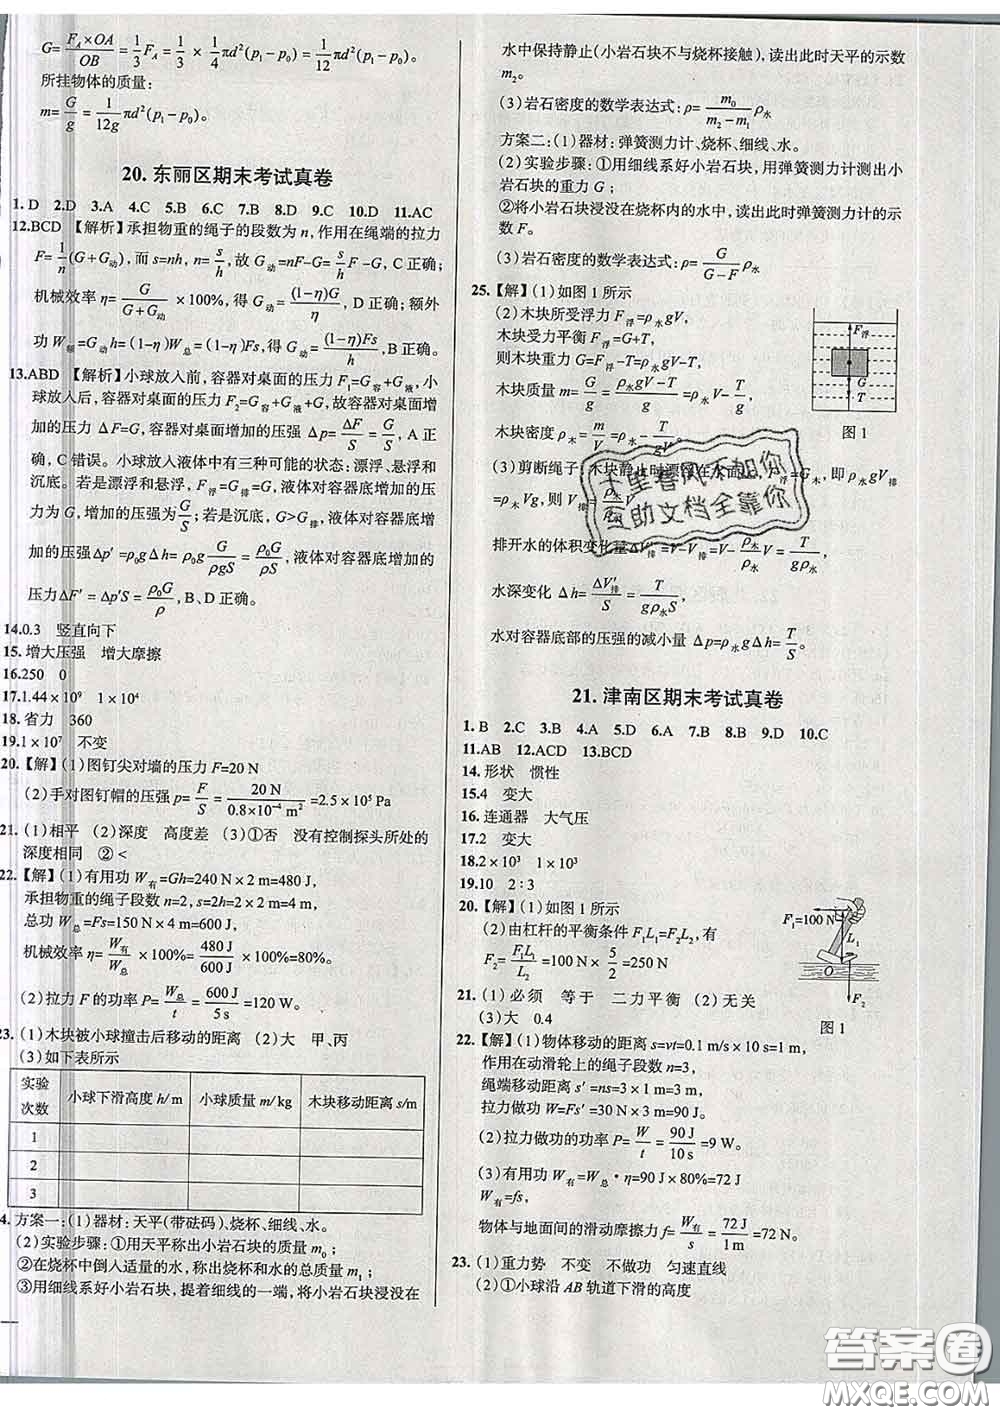 G=F_A×OA/OB=1/3F_A=1/3×1/4πd²(p₁-p₀)=1/12πd²(p₁-p₀)。
所挂物体的质量:
m=G/g=1/12g πd²(p₁-p₀)。
20. 东丽区期末考试真卷
1. D 2.D 3.A 4.C 5.B 6.C 7.B 8.D 9.C 10.D 11.AC
12.BCD 【解析】承担物重的绳子的段数为n,作用在绳端的拉力
F=1/n(G+G动),而s=nh,n=s/h,故G动=nF-G=s/h F-G,C正确;
机械效率η=G/(G+G动)×100%,得G动=(1-η)G/η,D正确;额外
功W额=G动h=(1-η)W总=(1-η)Fs,得G动=(1-η)Fs/h,B正确。
13.ABD 【解析】小球放入前,容器对桌面的压力F₁=G容+G液,小
球放入后,容器对桌面的压力F₂=G容+G液+G,故容器对桌面增
加的压力ΔF=G,容器对桌面增加的压强Δp=ΔF/S=G/S,A正
确,C错误。小球放入液体中有三种可能的状态:漂浮、悬浮和
沉底。若是漂浮和悬浮,F浮=G排=G,液体对容器底增加的压
力为G,增加的压强为G/S;若是沉底,G>G排,液体对容器底增
加的压强Δp′=ρ₀gΔh=ρ₀g G/ρgS=ρ₀G/ρS,液体对容器底增加的
压力ΔF′=Δp′S=ρ₀G/ρ,B、D正确。
14.0.3 竖直向下
15. 增大压强 增大摩擦
16.250 0
17.1.44×10⁹ 1×10⁴
18. 省力 360
19.1×10⁷ 不变
20.【解】(1)图钉尖对墙的压力F=20 N
(2)手对图钉帽的压强p=F/S=20 N/0.8×10⁻⁴ m²=2.5×10⁵ Pa
21. (1)相平 (2)深度 高度差 (3)①否 没有控制探头所处的
深度相同 ②<
22.【解】(1)有用功W有=Gh=240 N×2 m=480 J,
承担物重的绳子段数n=2,s=2h=2×2 m=4 m,
总功W总=Fs=150 N×4 m=600 J,
机械效率η=W有/W总×100%=480 J/600 J×100%=80%。
(2)拉力F的功率P=W总/t=600 J/5 s=120 W。
23.(1)木块被小球撞击后移动的距离 (2)大 甲、丙
(3)如下表所示
实验次数 小球下滑高度h/m 小球质量m/kg 木块移动距离s/m
1
2
3
4. 方案一:(1)器材:天平(带砝码)、烧杯、细线、水。
(2)实验步骤:①用天平称出小岩石块的质量m₀;
②在烧杯中倒入适量的水,称出烧杯和水的总质量m₁;
③用细线系好小岩石块,提着细线的一端,将小岩石块浸没在
水中保持静止(小岩石块不与烧杯接触),读出此时天平的示数
m₂。
(3)岩石密度的数学表达式:ρ=m₀/(m₂-m₁)ρ水
方案二:(1)器材:弹簧测力计、烧杯、细线、水。
(2)实验步骤:①用细线系好小岩石块,用弹簧测力计测出小
岩石块的重力G;
②将小岩石块浸没在烧杯内的水中,读出此时弹簧测力计的示
数F。
(3)岩石密度的数学表达式:ρ=G/(G-F)ρ水
25.【解】(1)如图1所示
(2)木块所受浮力F浮=ρ水gV,
木块受力平衡F浮=G+T,
则木块重力G=F浮-T=ρ水gV-T
木块质量m=G/g=(ρ水gV-T)/g=ρ水V-T/g,
木块密度ρ木=m/V=ρ水-T/gV
F浮
G
T
图1
(3)剪断绳子,木块静止时漂浮在水面,=G木,即ρ水gV排
=ρ木Vg,则V排
排开水的体积变化量ΔV′排=V-V排=V-ρ木/ρ水 V=T/gρ水,
水深变化Δh=ΔV′排/S=T/gρ水S,
水对容器底部的压强的减小量Δp=ρ水gΔh=T/S。
千里春风不如你
互助文档全靠你
21. 津南区期末考试真卷
1. B 2.C 3.B 4.A 5.D 6.A 7.B 8.B 9.D 10.C
11.AB 12.ACD 13.BCD
14. 形状 惯性
15.4 变大
16. 连通器 大气压
17.2 变大
18.2×10³ 1×10³
19.10 2:3
20.【解】(1)如图1所示
(2)由杠杆的平衡条件F₁L₁=F₂L₂,有
F₂=F₁L₁/L₂=100 N×5/2=250 N
F₁=100 N
L₁
O
F₂
图1
21. (1)必须 等于 二力平衡 (2)无关
(3)大 0.4
22.【解】(1)物体移动的距离s=vt=0.1 m/s×10 s=1 m,
作用在动滑轮上的绳子段数n=3,
绳端移动距离s′=ns=3×1 m=3 m,
拉力做功W=Fs′=30 N×3 m=90 J。
(2)拉力做功的功率P=W/t=90 J/10 s=9 W。
(3)有用功W有=W总·η=90 J×80%=72 J
W有=fs,
物体与地面间的滑动摩擦力f=W有/s=72 J/1 m=72 N。
23. (1)重力势 不变 不做功 匀速直线
(2)①小球沿AB轨道下滑的高度
答案圈
MXQE.COM